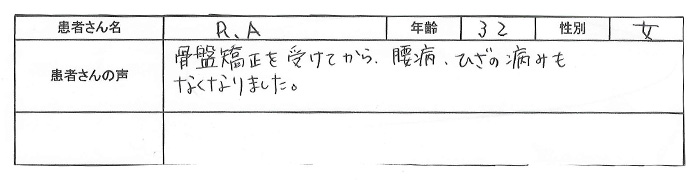 患者さん名 R.A 年齢 32 性別 女
患者さんの声 骨盤矯正を受けてから、腰病、ひざの病みも
なくなりました。